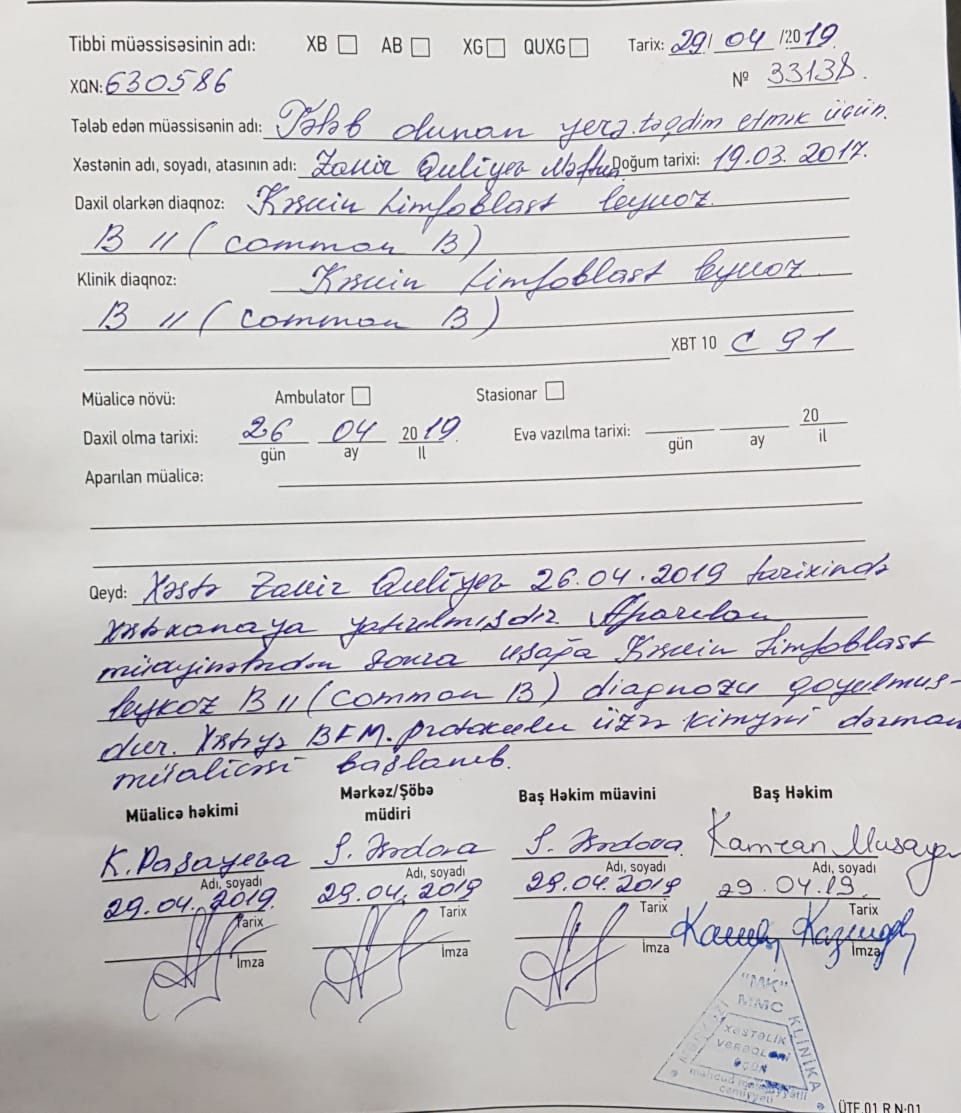 Tibbi müəssisəsinin adı: XB AB XG QUXG Tarix: 29/ 04 /2019
XQN: 630586 Nº 33138.
Tələb edən müəssisənin adı: Tələb olunan yerə təqdim etmək üçün.
Xəstənin adı, soyadı, atasının adı: Zakir Quliyev Məftun Doğum tarixi: 19.03.2017.
Daxil olarkən diaqnoz: Kəskin Limfoblast leykoz
B II (common B)
Klinik diaqnoz: Kəskin Limfoblast leykoz
B II (common B)
XBT 10 C 91
Müalicə növü: Ambulator Stasionar
Daxil olma tarixi: 26 04 2019 Evə vazılma tarixi: 20
gün ay İl gün ay il
Aparılan müalicə:
Qeyd: Xəstə Zakir Quliyev 26.04.2019 tarixində
xəstəxanaya yatırılmışdır. Aparılan
müayinələrdən sonra uşağa Kəskin Limfoblast
leykoz B II (common B) diagnozu qoyulmuş-
dur. Xəstəyə BFM. protokolu üzrə kimyəvi dərman
müalicəsi başlanıb.
Müalicə həkimi Mərkəz/Şöbə müdiri Baş Həkim müavini Baş Həkim
K. Paşayeva Kamran Musayev
Adı, soyadı Adı, soyadı Adı, soyadı Adı, soyadı
29.04.2019 29.04.2019 29.04.2019 29.04.19
Tarix Tarix Tarix Tarix
İmza İmza İmza İmza
"MK"
MMC
MƏRKƏZİ KLİNİKA
XƏSTƏLİK
VƏRƏQLƏRİ
ÜÇÜN
məhdud məsuliyyətli
cəmiyyəti
ÜTF 01 R N-01